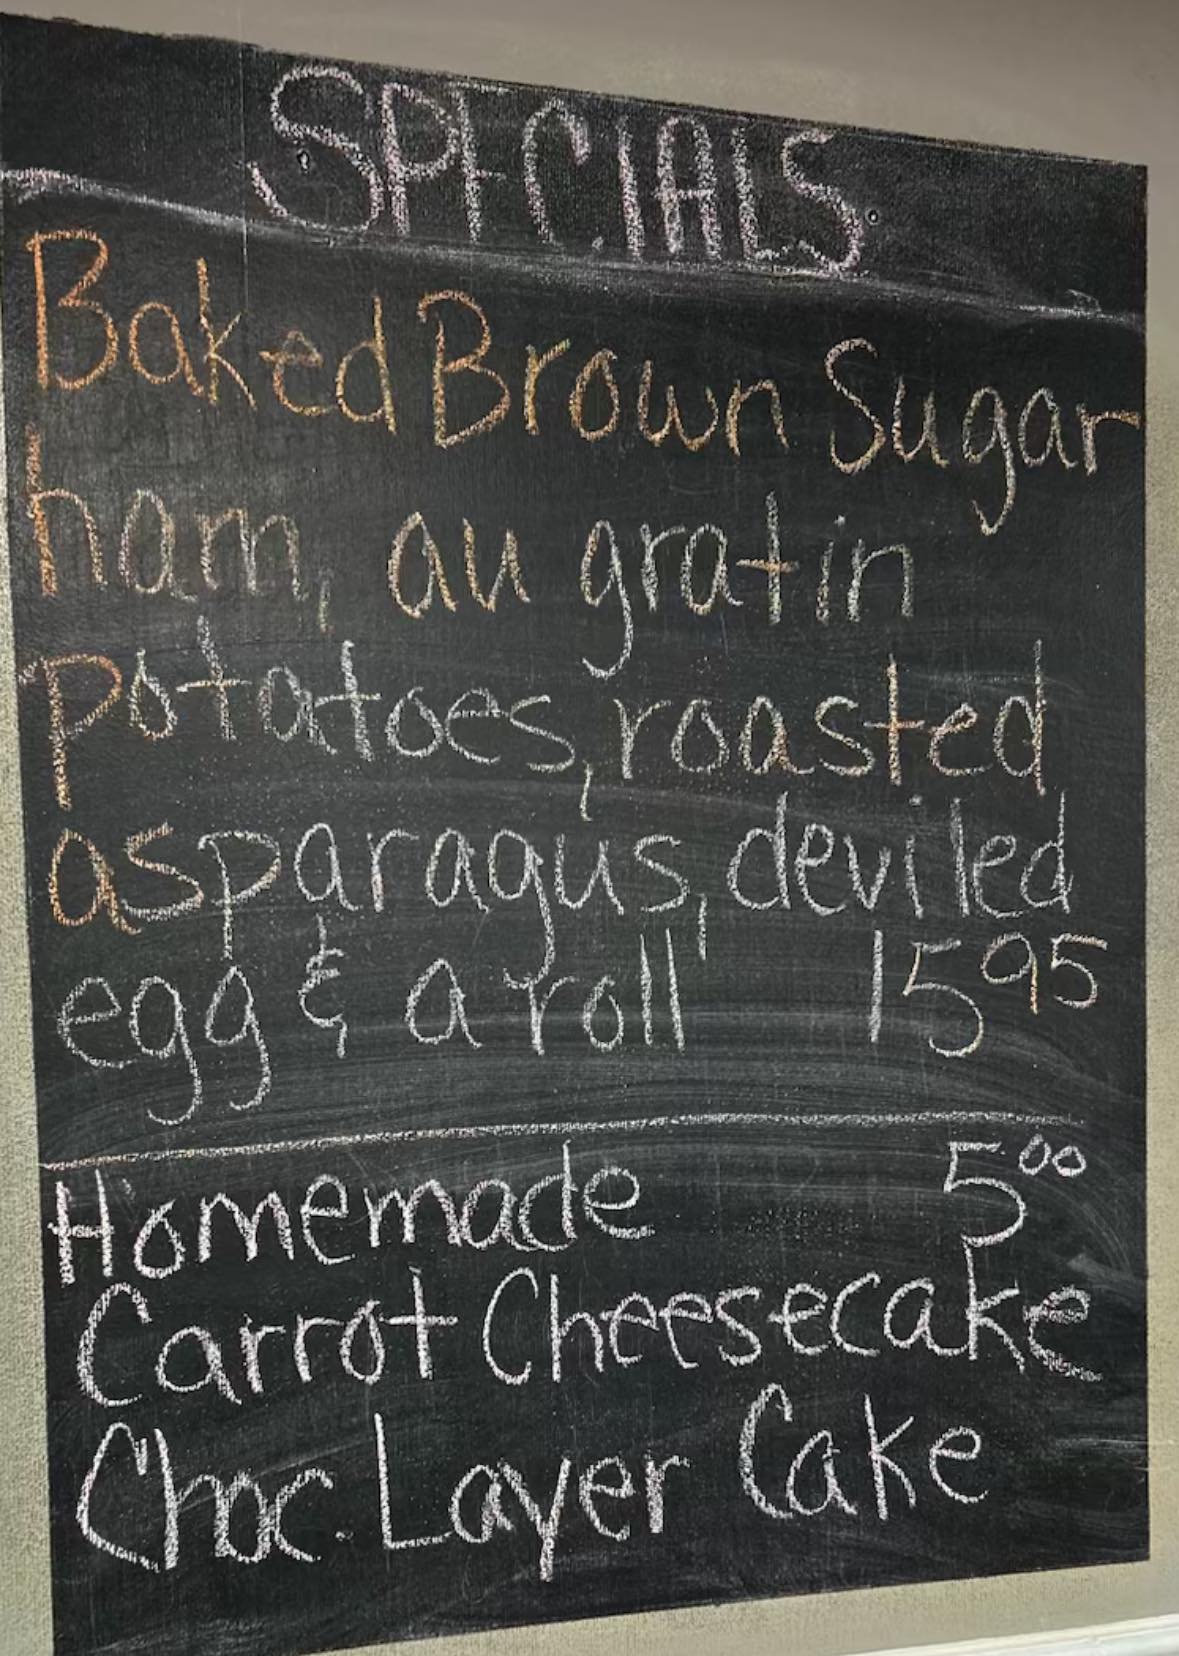 SPECIALS
Baked Brown Sugar
ham, au gratin
Potatoes, roasted
asparagus, deviled
egg & a roll 15 95
Homemade 5 00
Carrot Cheesecake
Choc. Layer Cake